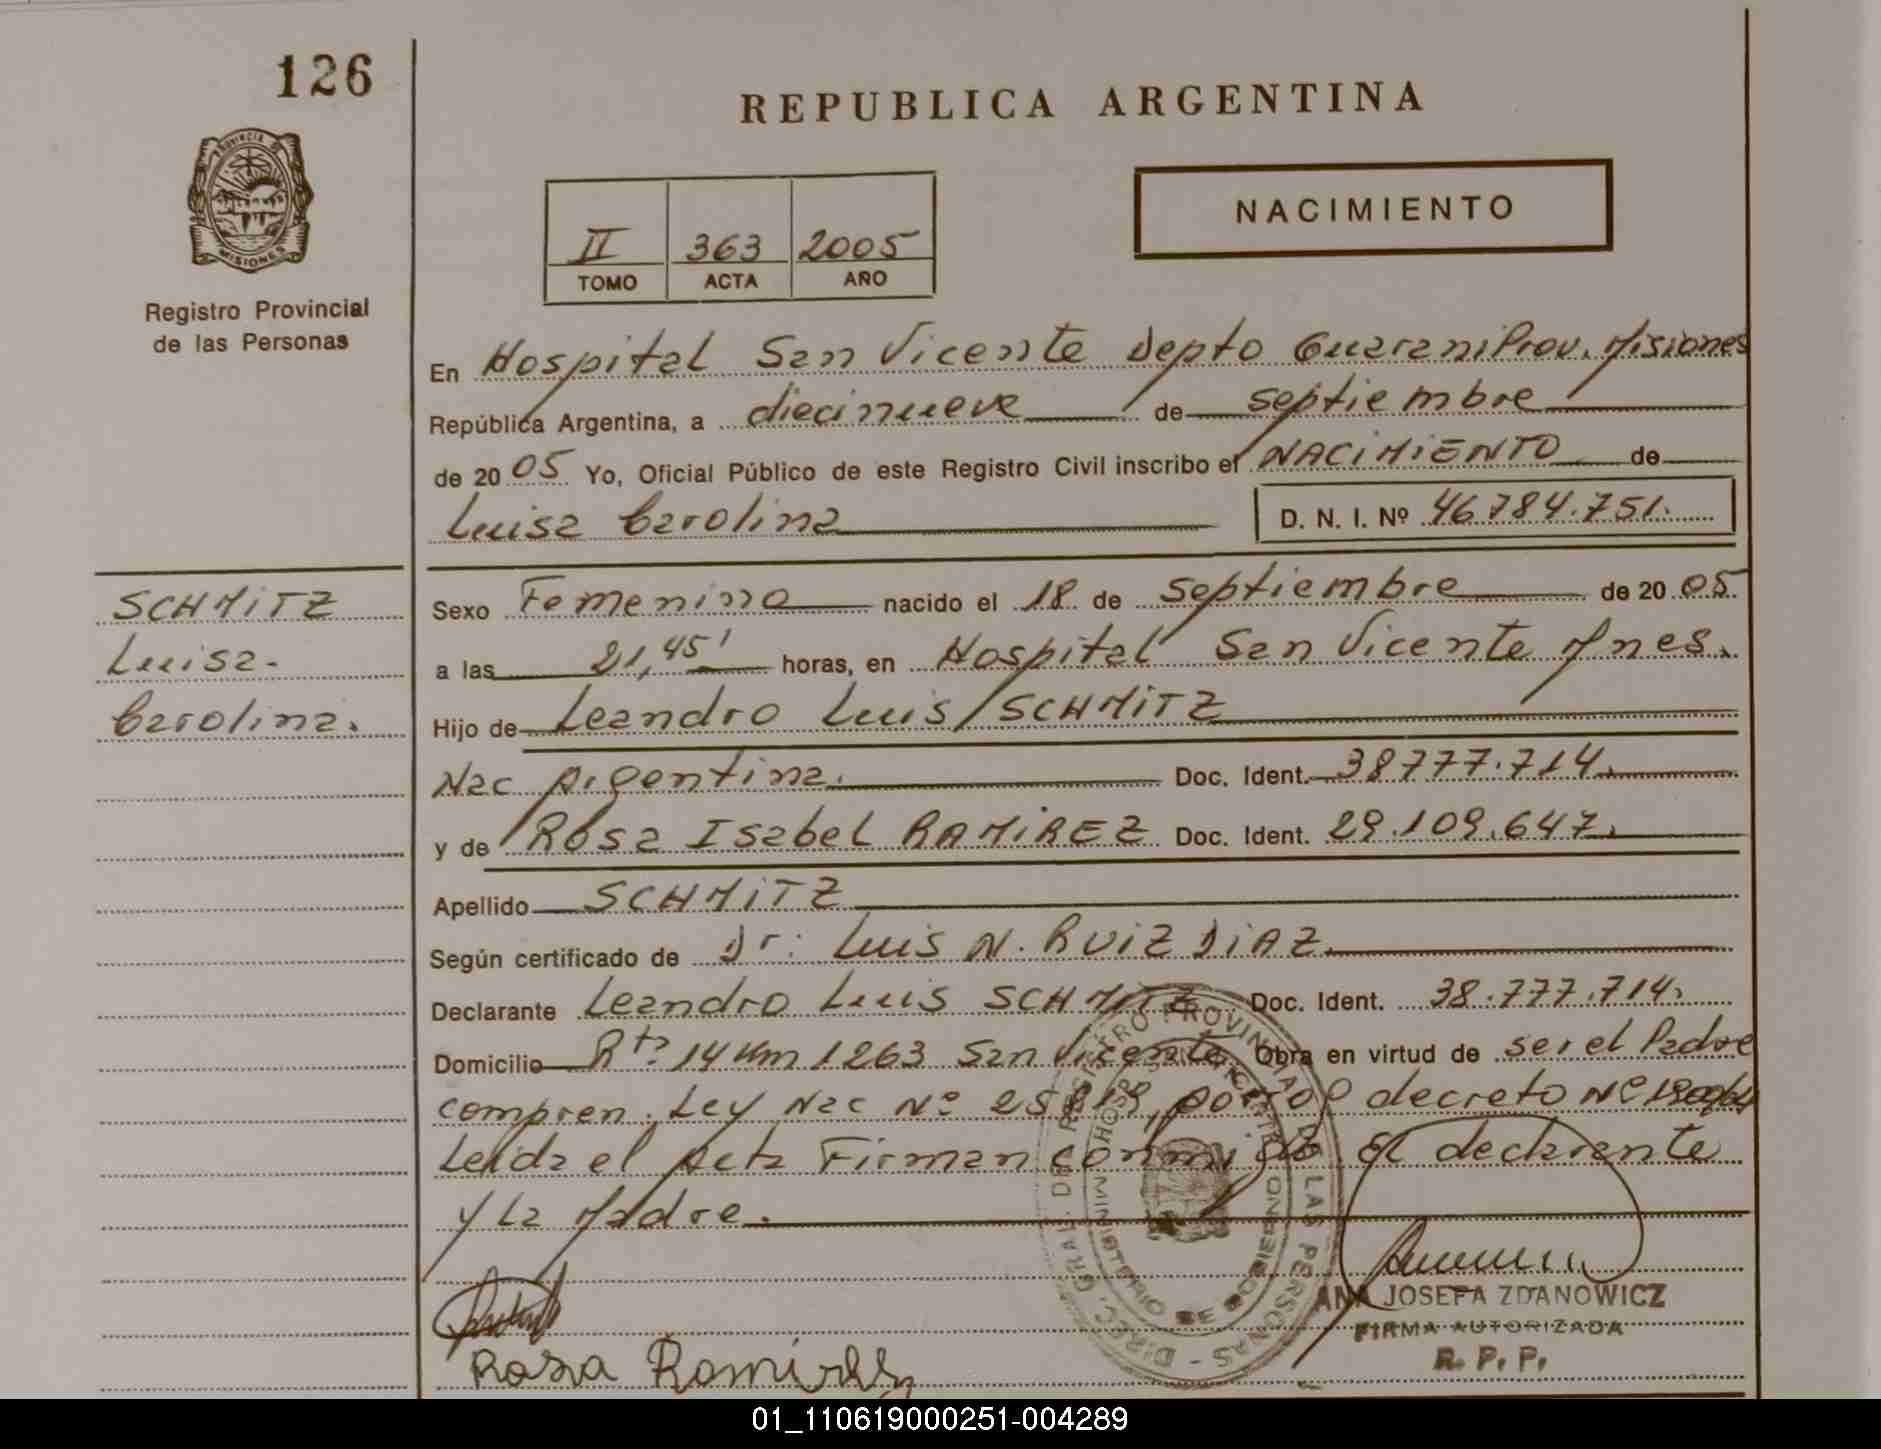 126
REPUBLICA ARGENTINA
PROVINCIA DE
MISIONES
Registro Provincial
de las Personas
II 363 2005
TOMO ACTA AÑO
NACIMIENTO
En Hospital San Vicente Depto Guarani Prov. Misiones
República Argentina, a diecinueve de septiembre
de 20 05 Yo, Oficial Público de este Registro Civil inscribo el NACIMIENTO de
Luisa Carolina D. N. I. Nº 46.784.751.
SCHMITZ
Luisa.
Carolina.
Sexo Femenino nacido el 18 de septiembre de 20 05
a las 21,45' horas, en Hospital San Vicente Mnes.
Hijo de Leandro Luis SCHMITZ
Nac Argentina. Doc. Ident. 38777.714.
y de Rosa Isabel RAMIREZ Doc. Ident. 29.109.647.
Apellido SCHMITZ
Según certificado de Dr: Luis N. RUIZ DIAZ.
Declarante Leandro Luis SCHMITZ Doc. Ident. 38.777.714.
Domicilio Rta 14 Km 1263 San Vicente. Obra en virtud de ser el Padre
compren. Ley Nac Nº decreto Nº
Leida el Acta Firman conmigo El declarante
y La Madre.
DIREC. GRAL. DE REGISTRO PROVINCIAL DE LAS PERSONAS
MINISTERIO DE GOBIERNO
ANA JOSEFA ZDANOWICZ
FIRMA AUTORIZADA
R. P. P.
Rosa Ramirez
01_110619000251-004289